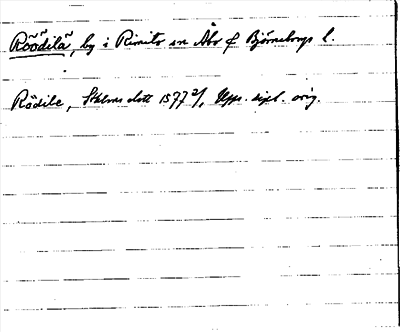 Röödilä, by i Rimito sn Åbo o. Björneborgs l.
Rödile, Sthlms slott 1577 2/1, Upps. dipl. orig.